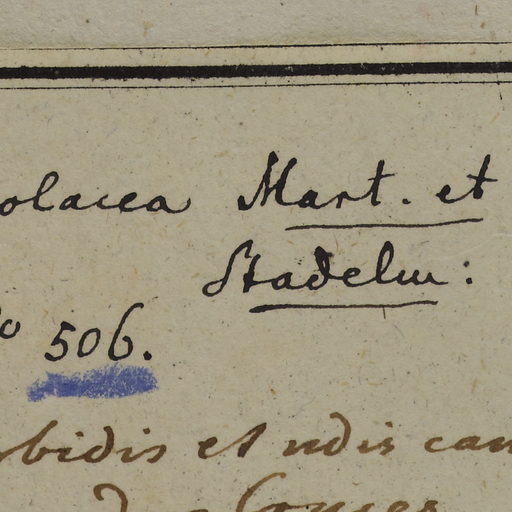 olacea Mart. et
Stadelm:
o 506.
rbidis et udis cam